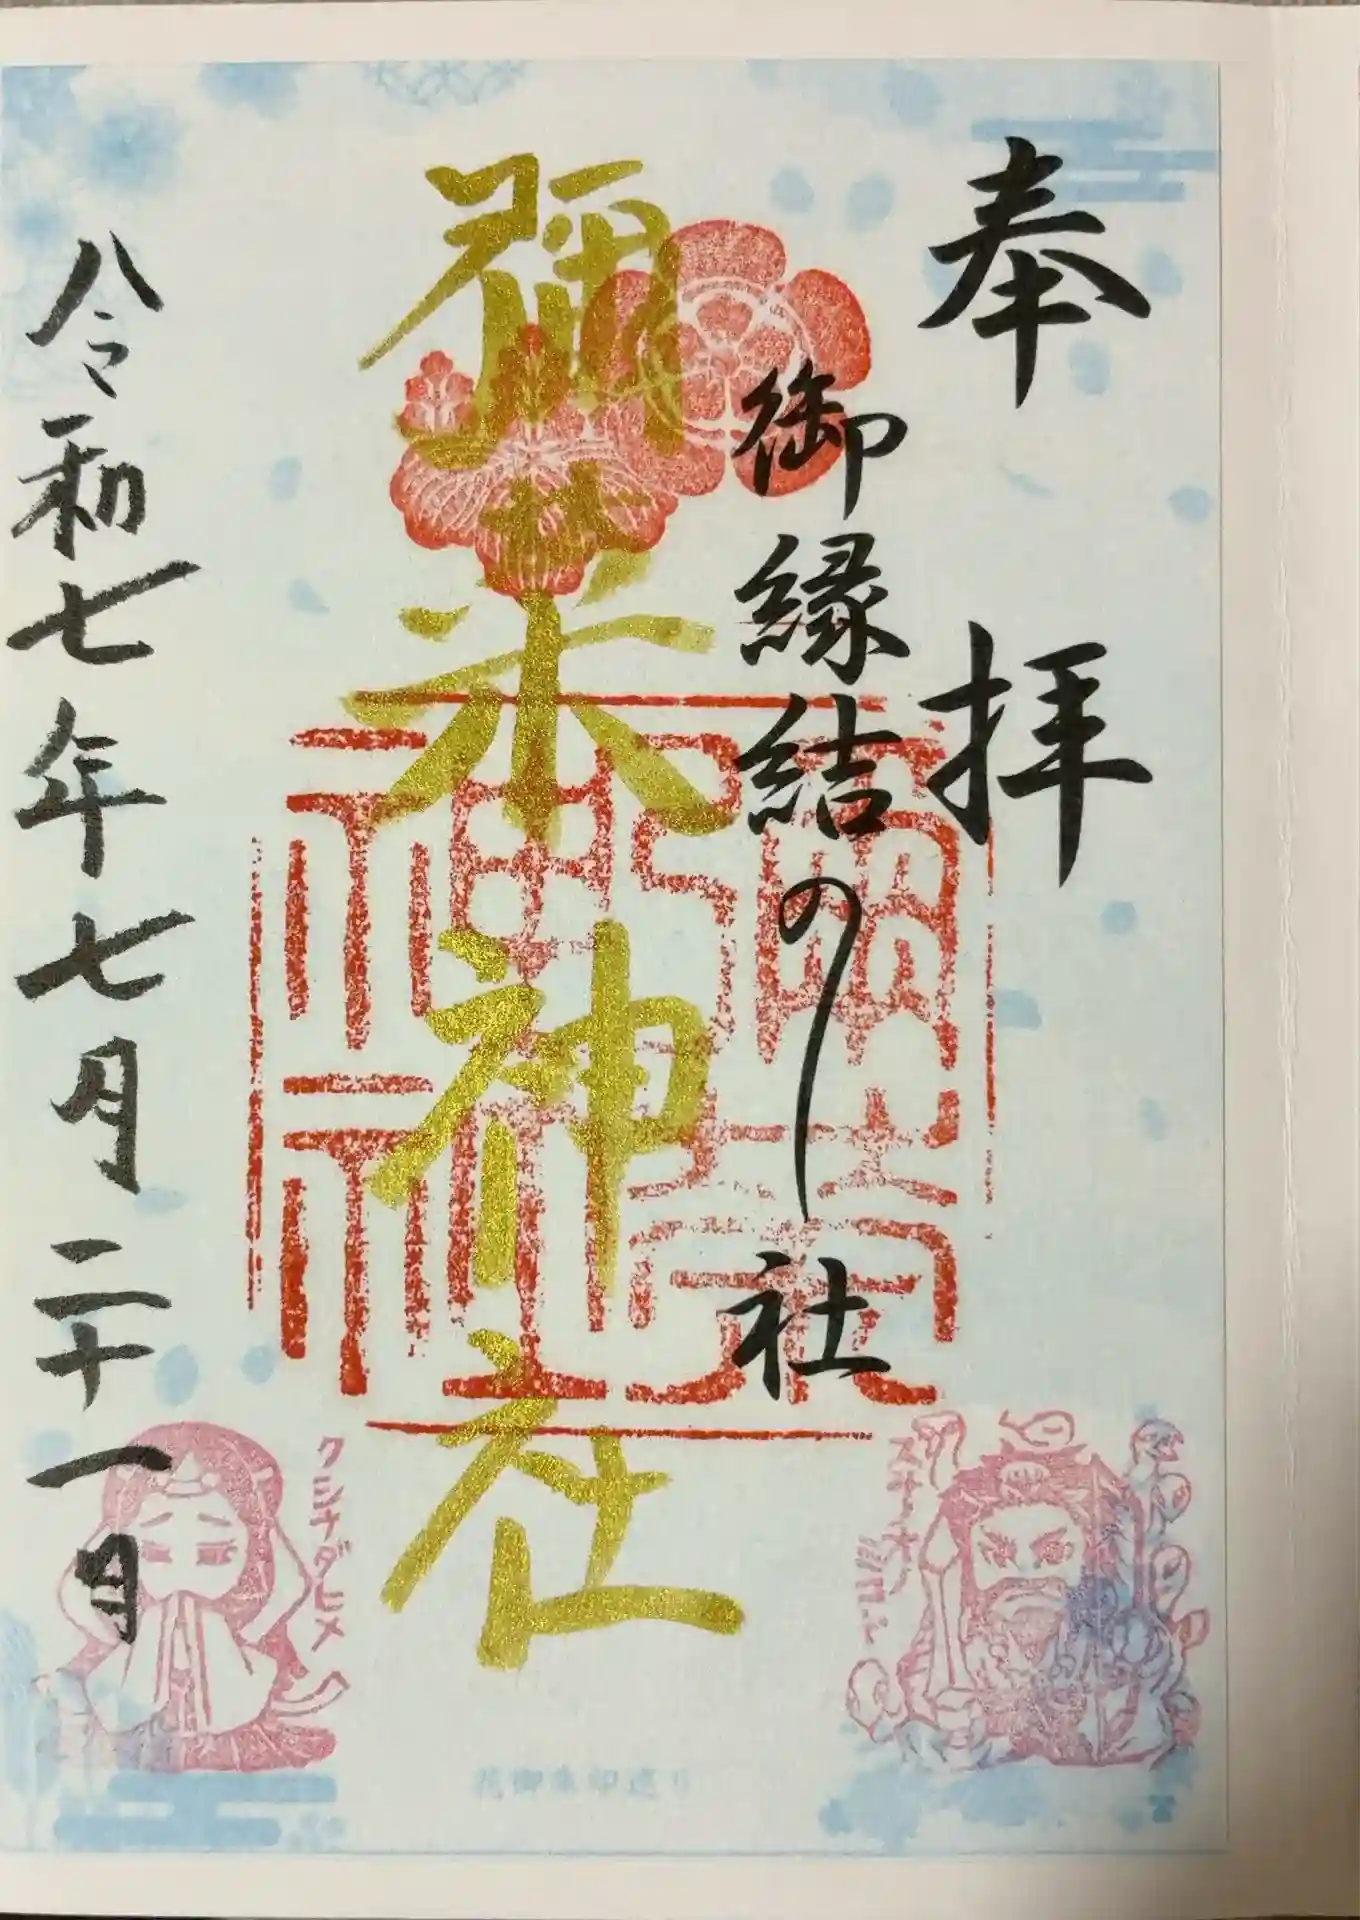 奉拝
御縁結の社
彌栄神社
令和七年七月二十一日
スサノオノミコト
クシナダヒメ
花御朱印巡り